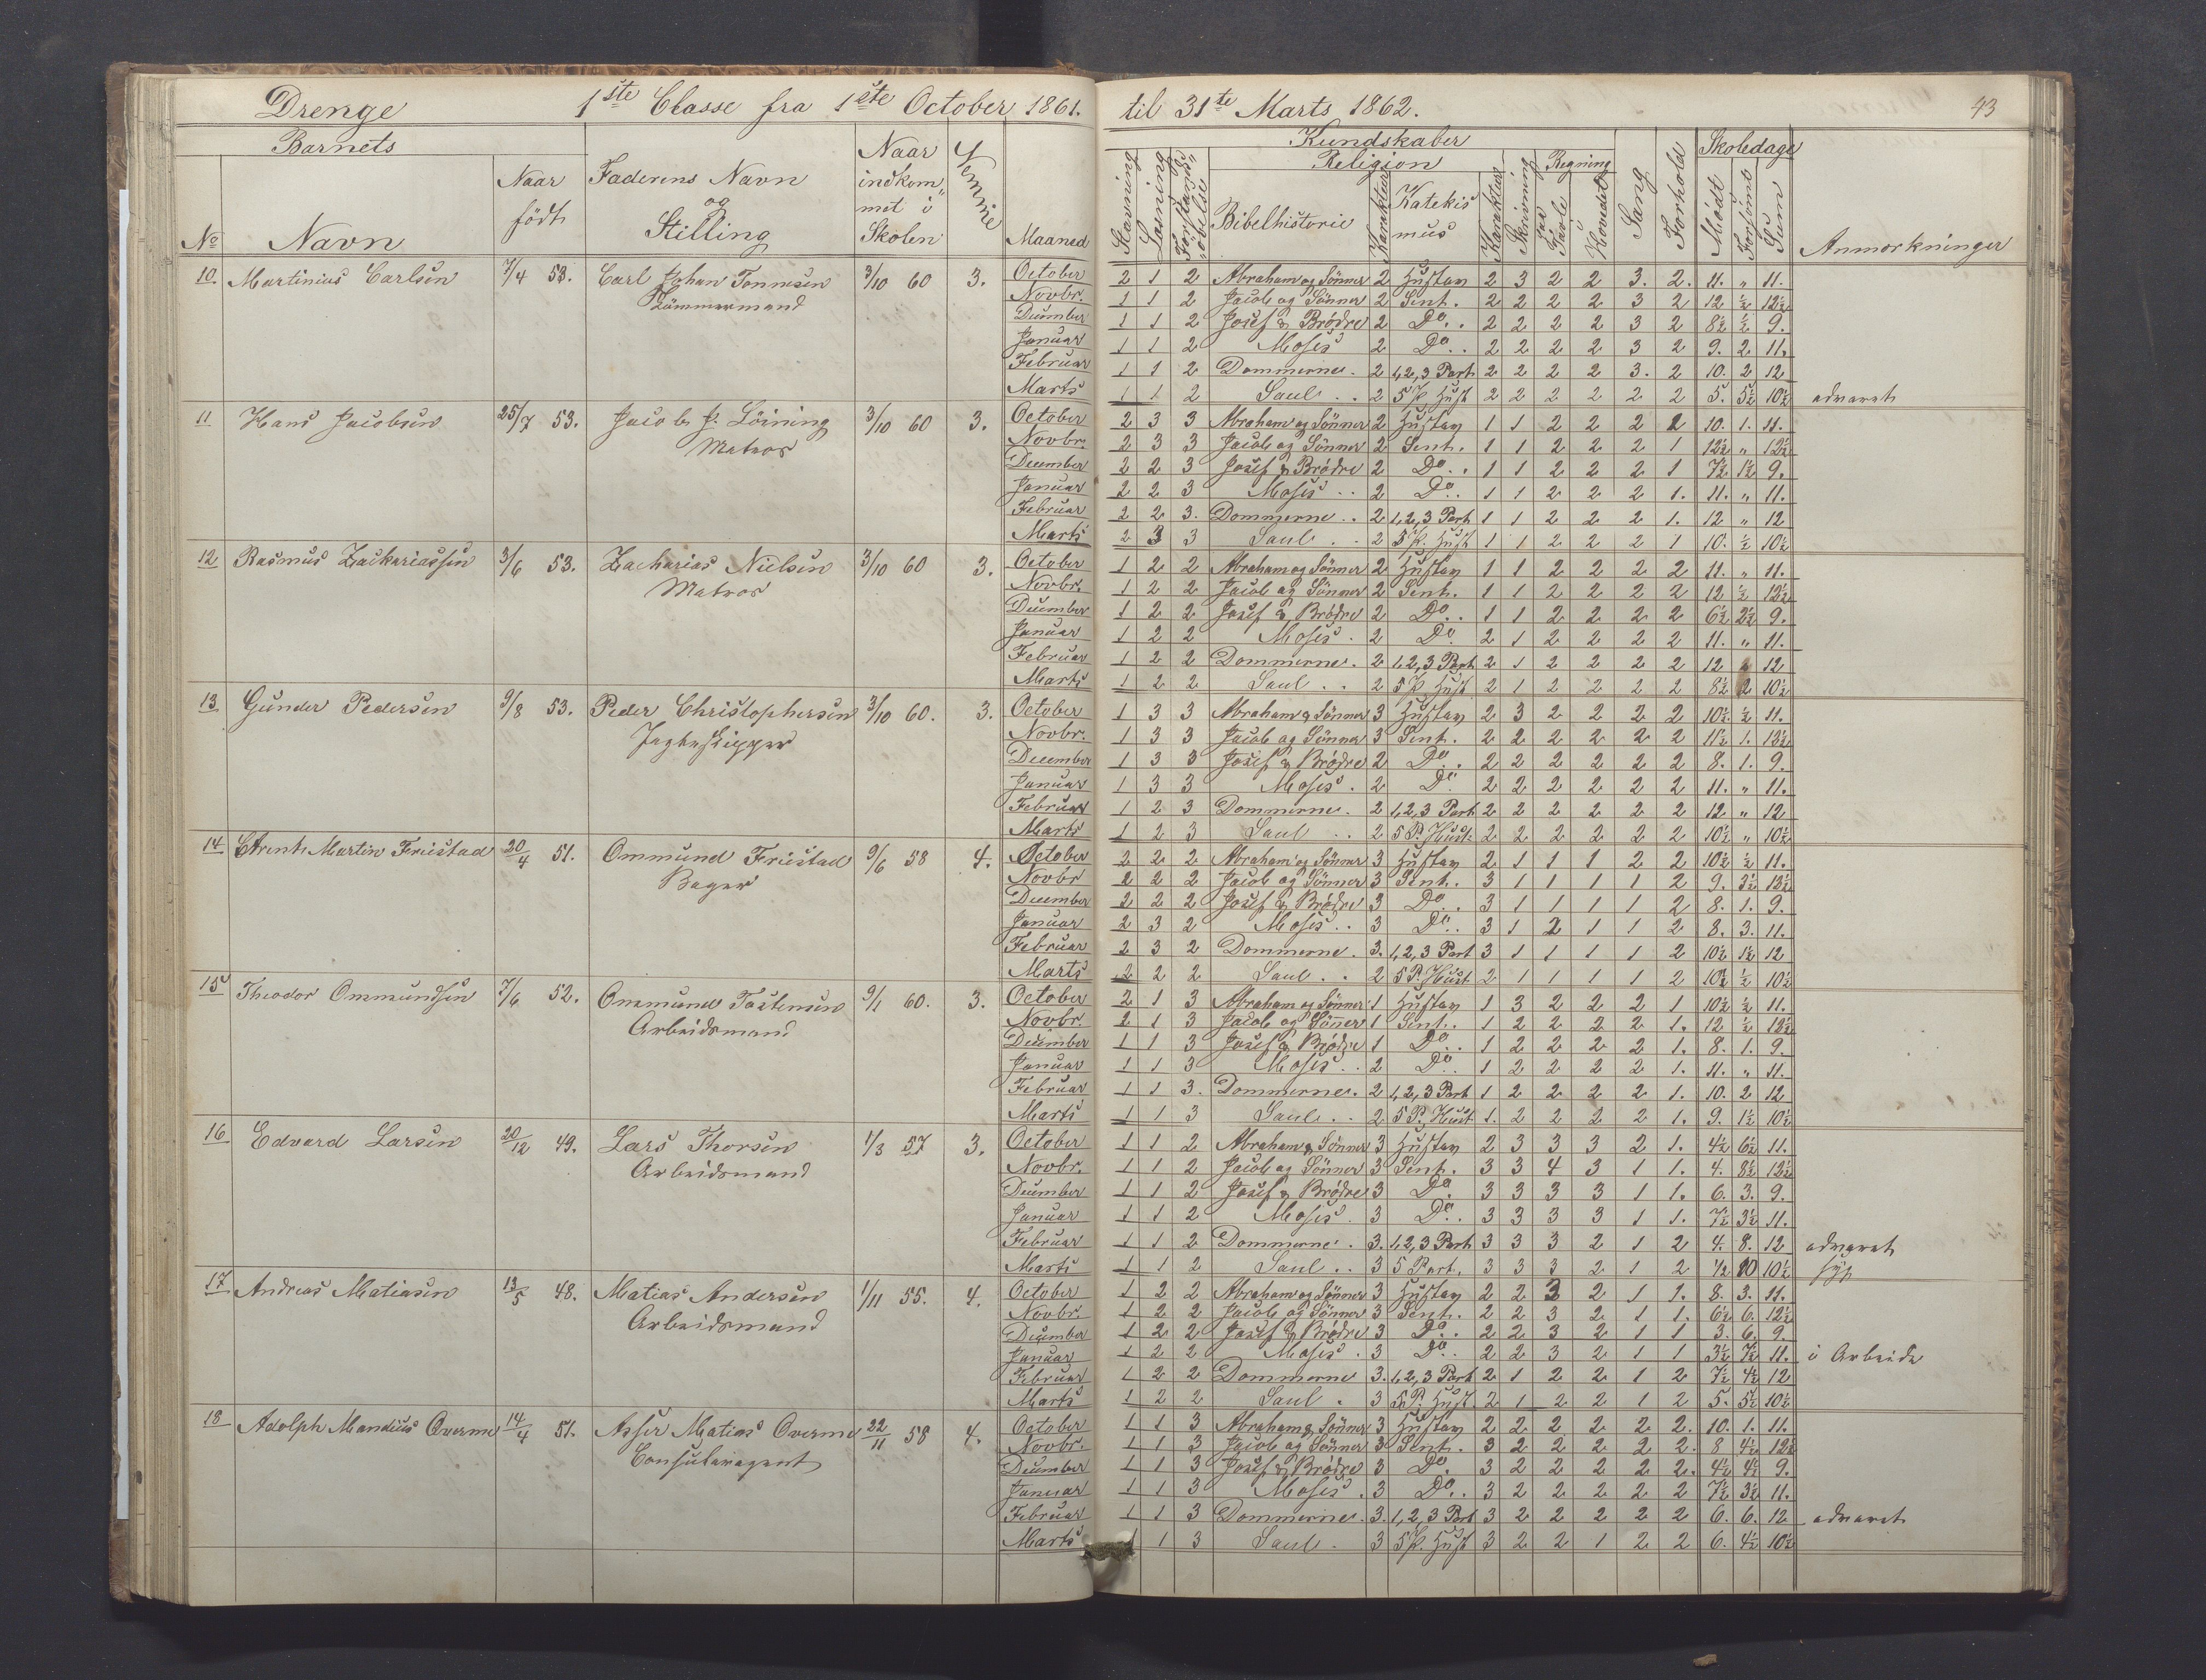 Drenge 1ste Classe fra 1ste October 1861. til 31te Marts 1862. 43
Barnets
No Navn Naar födt Faderens Navn og Stilling Naar indkommet i Skolen Nemme Maaned
Kundskaber
Religion Regning Skoledage
Stavning Læsning Bibelhistorie Karakter Katekismus Karakter Skrivning paa Tavle i Hovedet Sang Forhold Mödt Forsömt Sum Anmærkninger
10. Martinius Carlsen 7/4 53. Carl Johan Tonnesen 3/10 60 3. October 2 1 2 Abraham og Sönner 2 Hustav 2 3 2 2 3. 2. 11. " 11.
Tömmermand Novbr. 1 1 2 Jacob og Sönner 2 Sent. 2 2 2 2 3 2 12 ½ 12½
December 1 1 2 Josef & Brödre 2 Do.. 2 2 2 2 3 2 8½ ½ 9.
Januar 1 1 2 Moses 2 Do.. 2 2 2 2 3 2 9. 2 11.
Februar 1 1 2 Dommerne. 2 1,2,3 Part 2 2 2 2 3. 2 10. 2 12
Marts 1 1 2 Saul .. 2 5 P. Hust 2 2 2 2 2 2 5. 5½ 10½ advaret
11 Hans Jacobsen 25/7 53. Jacob J. Löining 3/10 60 3. October 2 3 3 Abraham og Sönner 2 Hustav 1 1 2 2 2 2 10. 1. 11.
Matros Novbr. 2 3 3 Jacob og Sönner 2 Sent. 1 1 2 2 2 1 12½ " 12½
December 2 2 3 Josef & Brödre 2 Do.. 1 1 2 2 2 1 7½ 1½ 9.
Januar 2 2 3 Moses .. 2 Do.. 1 1 2 2 2 1. 11. " 11.
Februar 2 2 3. Dommerne .. 2 1,2,3 Part 1 1 2 2 2 1. 12 " 12
Marts 2 3 3 Saul .. 2 5 P. Hust 1 1 2 2 2 1 10. ½ 10½
12 Rasmus Zackariassen 3/6 53. Zacharias Nielsen 3/10 60 3. October 1 2 2 Abraham og Sönner 2 Hustav 1 1 2 2 2 2 11. " 11.
Matros Novbr. 1 2 2 Jacob og Sönner 2 Sent. 1 1 2 2 2 2 12 ½ 12½
December 1 2 2 Josef & Brödre 2 Do.. 1 1 2 2 2 2 6½ 2½ 9.
Januar 1 2 2 Moses . 2 Do. 2 1 2 2 2 2 11. " 11.
Februar 1 2 2 Dommerne. 2 1,2,3 Part 2 1 2 2 2 2 12 12
Marts 1 2 2 Saul .. 2 5 P. Hust 2 1 2 2 2 2 8½ 2 10½
13 Gunder Pedersen 9/8 53. Peder Christophersen 3/10 60. 3. October 1 3 3 Abraham & Sönner 3 Hustav 2 3 2 2 2 2 10½. ½ 11.
Jagteskipper Novbr. 1 3 3 Jacob og Sönner 3 Sent. 2 2 2 2 2 2 11½ 1. 12½
December 1 3 3 Josef & Brödre 2 Do.. 2 2 2 2 2 2 8. 1. 9.
Januar 1 3 3 Moses . 2 Do. 2 2 2 2 2 2 11. " 11.
Februar 1 2 3 Dommerne. 2 1,2,3 Part 2 2 2 2 2 2 12 " 12
Marts 1 2 3 Saul .. 2 5 P. Hust. 2 2 2 2 2 2 10½ " 10½
14 Martin Friestad 20/4 51. Ommund Friestad 9/6 58 4. October 2 2 2 Abraham og Sönner 3 Hustav 2 1 1 1 2 2 10½ ½ 11.
Bager Novbr 2 2 2 Jacob og Sönner 3 Sent. 3 1 1 1 1 2 9. 3½ 12½
December 2 2 2 Josef & Brödre 3 Do.. 3 1 1 1 1 2 8. 1. 9.
Januar 2 3 2 Moses .. 3 Do.. 3 1 2 1 1 2 8. 3. 11.
Februar 2 3 2 Dommerne. 3. 1,2,3 Part 3 1 1 1 1 2 10½ 1½ 12
Marts 2 2 2 Saul .. 2 5 P. Hust 2 1 1 1 1 2 10 ½ 10½
15 Theodor Ommundsen 7/6 52. Ommund Tostensen 9/1 60. 3. October 2 1 3 Abraham og Sönner 1 Hustav 1 3 2 2 2 1 10½ ½ 11.
Arbeidsmand Novbr. 2 1 3 Jacob og Sönner 1 Sent. 1 2 2 2 2 1. 12 ½ 12½
December 1 1 3 Josef & Brödre 1 Do.. 1 2 2 2 2 1. 8. 1. 9.
Januar 1 1 3 Moses .. 2 Do.. 1 2 2 2 2 1. 11. " 11.
Februar 1 1 3. Dommerne. 2 1,2,3 Part 1 2 2 2 2 1. 10. 2 12
Marts 1 1 3 Saul .. 2 5 P. Hust 1. 2 2 2 2 1. 9. 1½ 10½
16 Edvard Larsen 20/12 49. Lars Thorsen 1/3 57 3. October 1 1 2 Abraham & Sönner 3 Hustav 2 3 3 3 2 1. 4½ 6½ 11.
Arbeidsmand Novbr. 1 1 2 Jacob og Sönner 3 Sent. 3 3 4 3 1 1. 4. 8½ 12½
December 1 1 2 Josef & Brödre 3 Do. 3 3 3 3 1 1. 6. 3. 9.
Januar 1 1 2 Moses . 3 Do.. 3 3 3 3 1 1. 7½ 3½ 11.
Februar 1 1 2 Dommerne. 3. 1,2,3 Part 3 3 3 2 1 2 4. 8. 12 advaret
Marts 1 1 2 Saul .. 3 5 Part. 3 3 3 2 1 2 ½ 10 10½ syg
17 Andreas Matiasen 13/5 48. Matias Andersen 1/11 55. 4. October 1 2 2 Abraham og Sönner 3 Hustav 2 2 3 2 1 1. 8. 3. 11.
Arbeidsmand Novbr. 1 2 2 Jacob og Sönner 3 Sent. 2 2 3 2 1 1. 6½ 6. 12½
December 1 2 2 Josef & Brödre 3 Do.. 2 2 3 2 1 1 3. 6. 9.
Januar 1 2 2 Moses . 3 Do.. 2 2 3 2 1 1 3½ 7½ 11. i Arbeide
Februar 1 2 2 Dommerne 3. 1,2,3 Part 2 1 2 2 1 2 7½ 4½ 12
Marts 1 2 2 Saul . 3 5 P. Hust. 2 1 2 2 1 2 5. 5½ 10½
18 Adolph Mandius Overne 14/4 51. Asser Matias Overne 22/11 58 4. October 1 1 3 Abraham & Sönner 3 Hustav 2 2 2 2 2 2. 10. 1. 11.
Consularagent Novbr. 1 1 3 Jacob og Sönner 3 Sent. 3 2 2 2 2 2. 8 4½ 12½
December 1 1 3 Josef & Brödre 3 Do. 3 2 2 2 2 2. 4½ 4½ 9.
Januar 1 1 3 Moses . 3 Do.. 3 2 2 2 2 2 7½ 3½ 11.
Februar 1 1 3 Dommerne. 3. 1,2,3 Part 3 2 2 2 2 2 6. 6. 12 advaret
Marts 1 3 Saul . 3 5 P. Hust 3 2 2 1 2 2 6. 4½ 10½